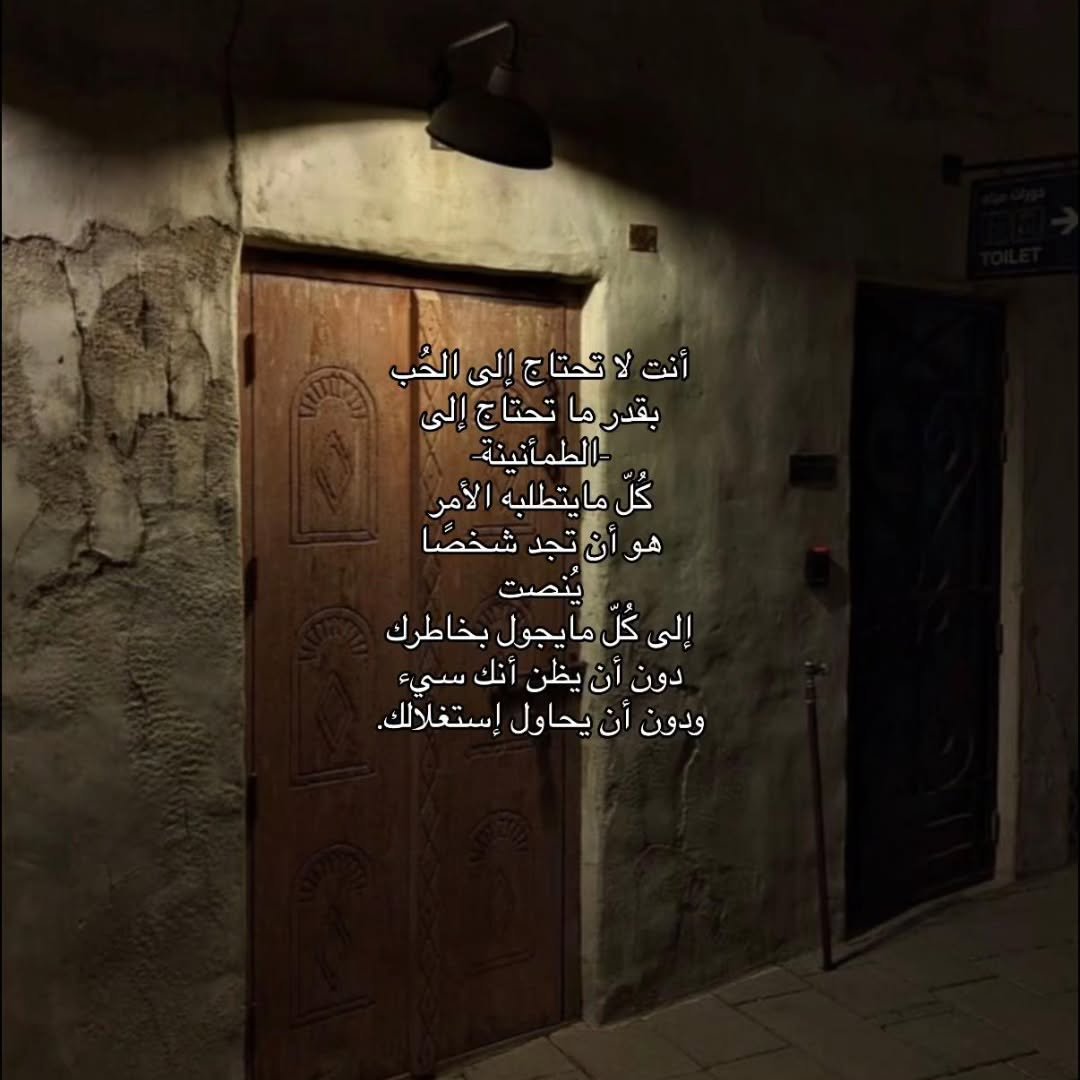 أنت لا تحتاج إلى الحُب
بقدر ما تحتاج إلى
-الطمأنينة-
كُلّ مايتطلبه الأمر
هو أن تجد شخصًا
يُنصت
إلى كُلّ مايجول بخاطرك
دون أن يظن أنك سيء
ودون أن يحاول إستغلالك.
دورات مياه
TOILET